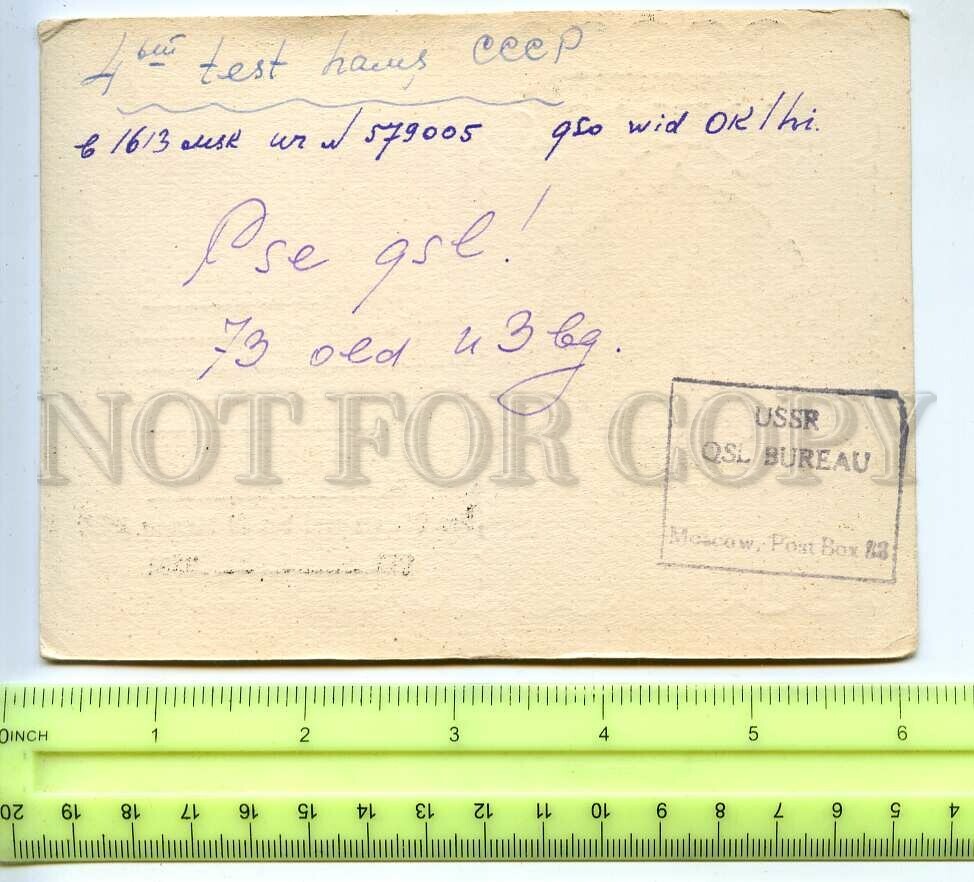 4ый test hams CCCP
в 1613 msk ur N 579005 qso wid OK/hi.
Pse qsl!
73 old u3bg.
NOT FOR COPY
USSR
QSL BUREAU
Moscow, Post Box 88
0INCH 1 2 3 4 5 6
20 19 18 17 16 15 14 13 12 11 10 9 8 7 6 5 4